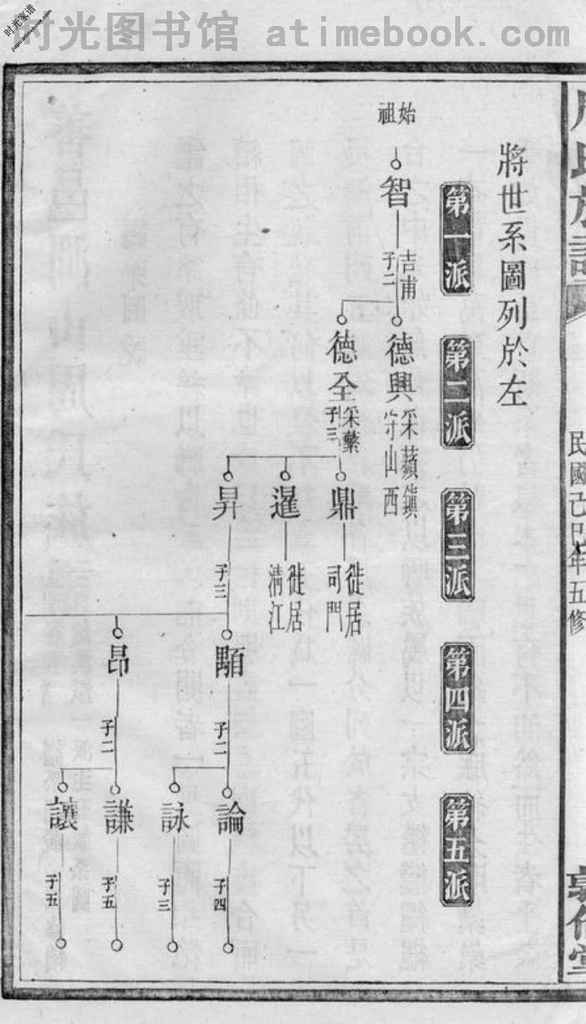 时光图书馆 atimebook.com
时光家谱
周氏族譜
民國己巳年五修
敦倫堂
將世系圖列於左
第一派
第二派
第三派
第四派
第五派
始祖
智
吉甫
子二
德興
采蘋鎮
守山西
德全
采蘩
子三
鼎
徙居
司門
暹
徙居
清江
昇
子三
顒
子二
昂
子二
論
子四
詠
子三
謙
子五
讓
子五